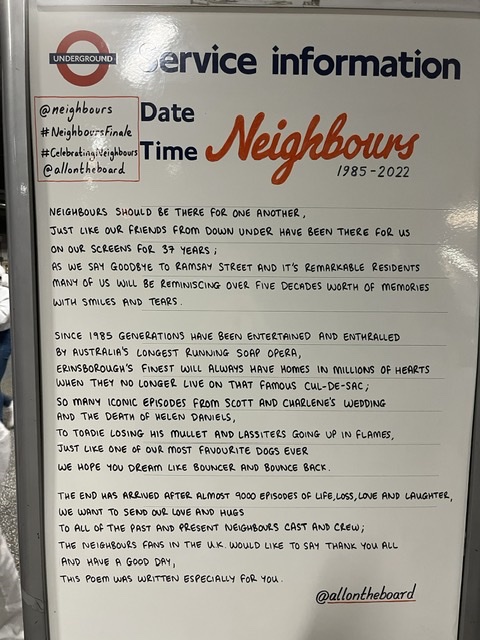 UNDERGROUND
Service information
@neighbours
#NeighboursFinale
#CelebratingNeighbours
@allontheboard
Date
Time
Neighbours
1985-2022
NEIGHBOURS SHOULD BE THERE FOR ONE ANOTHER,
JUST LIKE OUR FRIENDS FROM DOWN UNDER HAVE BEEN THERE FOR US
ON OUR SCREENS FOR 37 YEARS;
AS WE SAY GOODBYE TO RAMSAY STREET AND IT'S REMARKABLE RESIDENTS
MANY OF US WILL BE REMINISCING OVER FIVE DECADES WORTH OF MEMORIES
WITH SMILES AND TEARS.
SINCE 1985 GENERATIONS HAVE BEEN ENTERTAINED AND ENTHRALLED
BY AUSTRALIA'S LONGEST RUNNING SOAP OPERA,
ERINSBOROUGH'S FINEST WILL ALWAYS HAVE HOMES IN MILLIONS OF HEARTS
WHEN THEY NO LONGER LIVE ON THAT FAMOUS CUL-DE-SAC;
SO MANY ICONIC EPISODES FROM SCOTT AND CHARLENE'S WEDDING
AND THE DEATH OF HELEN DANIELS,
TO TOADIE LOSING HIS MULLET AND LASSITERS GOING UP IN FLAMES,
JUST LIKE ONE OF OUR MOST FAVOURITE DOGS EVER
WE HOPE YOU DREAM LIKE BOUNCER AND BOUNCE BACK.
THE END HAS ARRIVED AFTER ALMOST 9000 EPISODES OF LIFE, LOSS, LOVE AND LAUGHTER,
WE WANT TO SEND OUR LOVE AND HUGS
TO ALL OF THE PAST AND PRESENT NEIGHBOURS CAST AND CREW;
THE NEIGHBOURS FANS IN THE U.K. WOULD LIKE TO SAY THANK YOU ALL
AND HAVE A GOOD DAY,
THIS POEM WAS WRITTEN ESPECIALLY FOR YOU.
@allontheboard